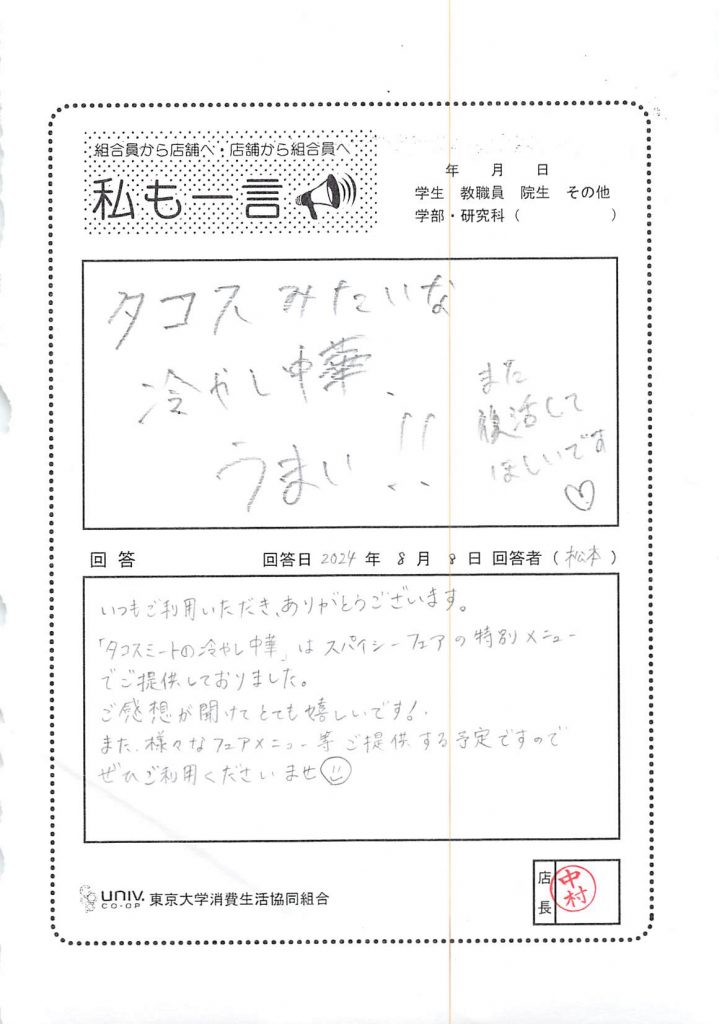 組合員から店舗へ・店舗から組合員へ
私も一言
年 月 日
学生 教職員 院生 その他
学部・研究科（ ）
タコスみたいな
冷やし中華、
うまい!!
また
復活して
ほしいです
♡
回答 回答日 2024年 8月 8日 回答者（松本）
いつもご利用いただき、ありがとうございます。
「タコスミートの冷やし中華」はスパイシーフェアの特別メニュー
でご提供しておりました。
ご感想が聞けてとても嬉しいです!.
また、様々なフェアメニュー等ご提供する予定ですので
ぜひご利用くださいませ☺
UNIV. CO-OP 東京大学消費生活協同組合
店長 中村